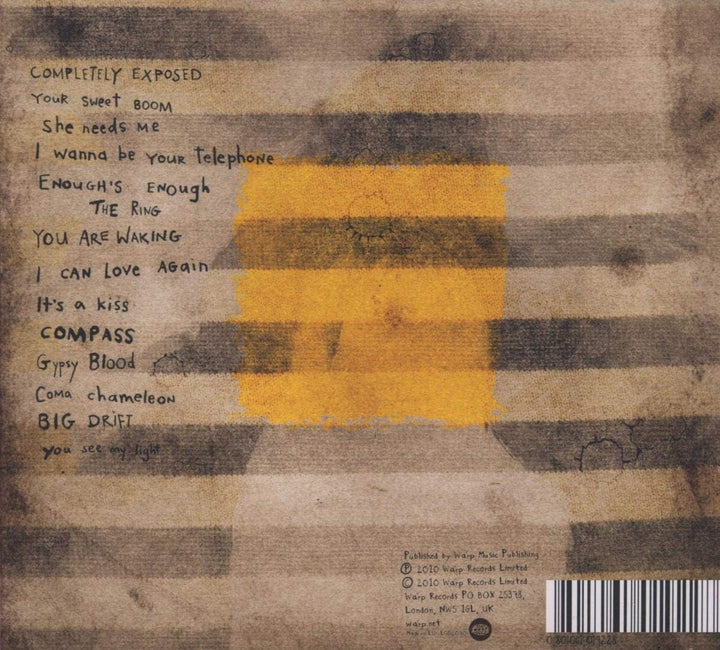 COMPLETELY EXPOSED
YOUR Sweet BOOM
She needs ME
I wanna be YOUR Telephone
ENOUGH'S ENough
THE RING
YOU ARE WAKING
I CAN LOVE AGAin
It's a kiss
COMPASS
Gypsy Blood
COMA chameleon
BIG DRIFT
You see my light
Published by Warp Music Publishing
Ⓟ 2010 Warp Records Limited
© 2010 Warp Records Limited
Warp Records PO BOX 25378,
London, NW5 1GL, UK
warp.net